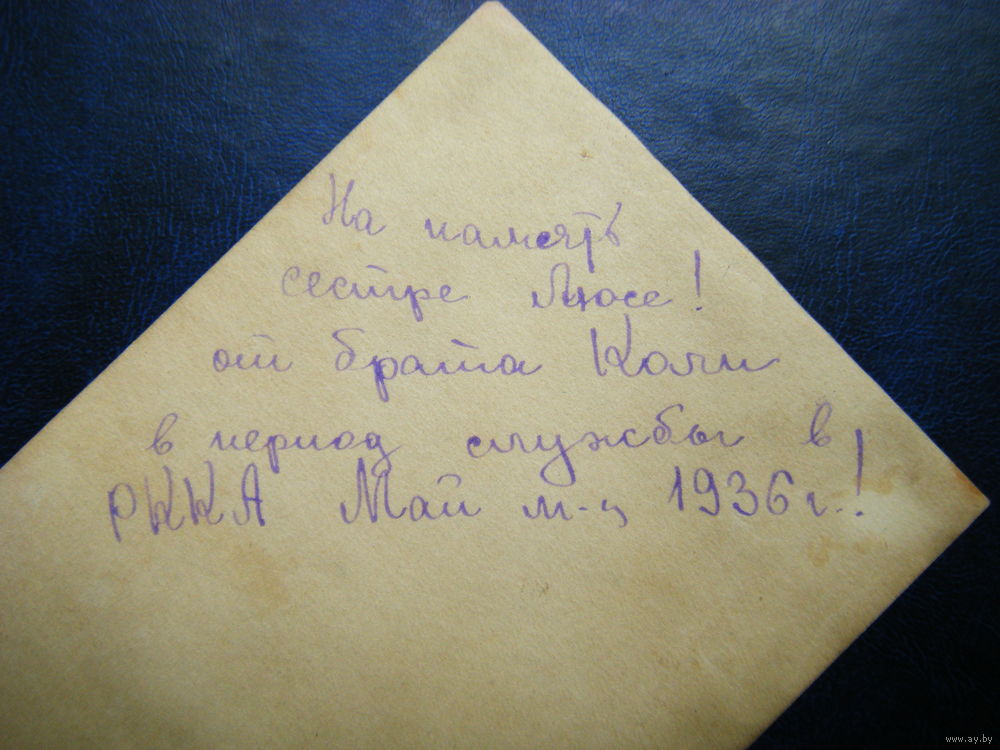 На память
сестре Люсе!
от брата Коли
в период службы в
РККА Май м-ц 1936г.!
www.ay.by